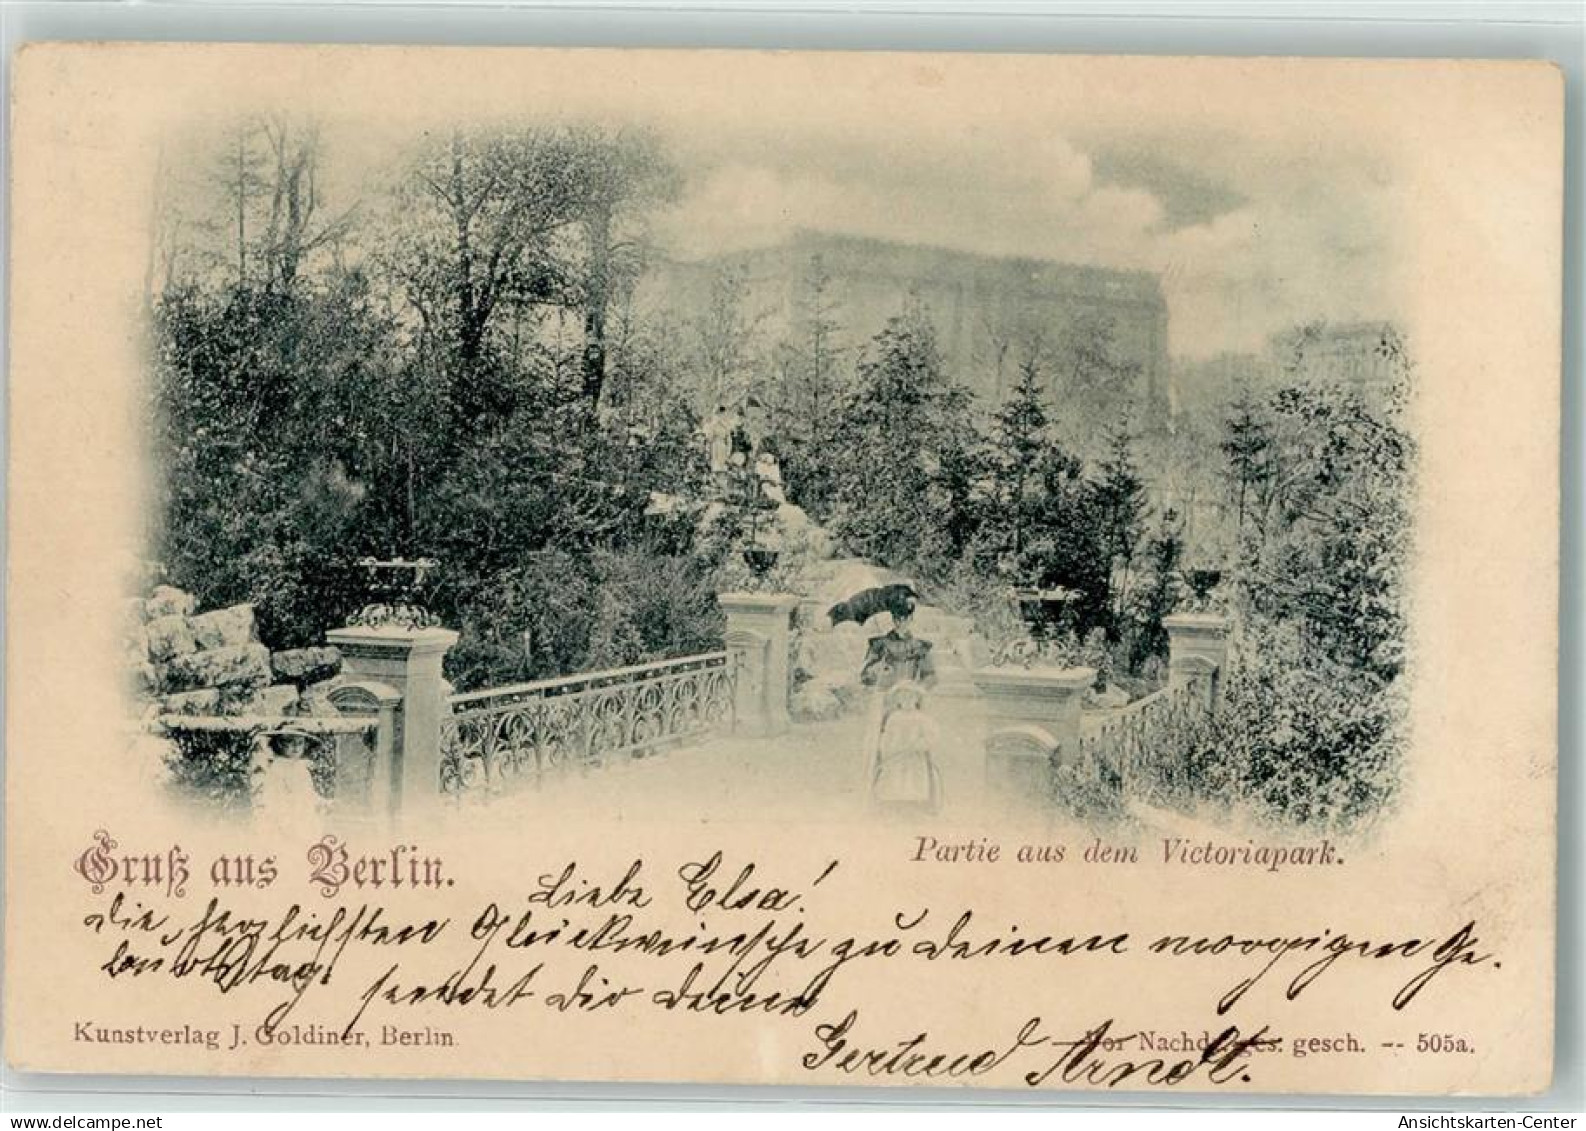 Gruß aus Berlin.
Partie aus dem Victoriapark.
Liebe Elsa!
Die herzlichsten Glückwünsche zu deinem morgigen Ge-
burtstag. sendet Dir Deine
Gertrud Arndt.
Kunstverlag J. Goldiner, Berlin.
Vor Nachdr. ges. gesch. -- 505a.
www.delcampe.net
Ansichtskarten-Center